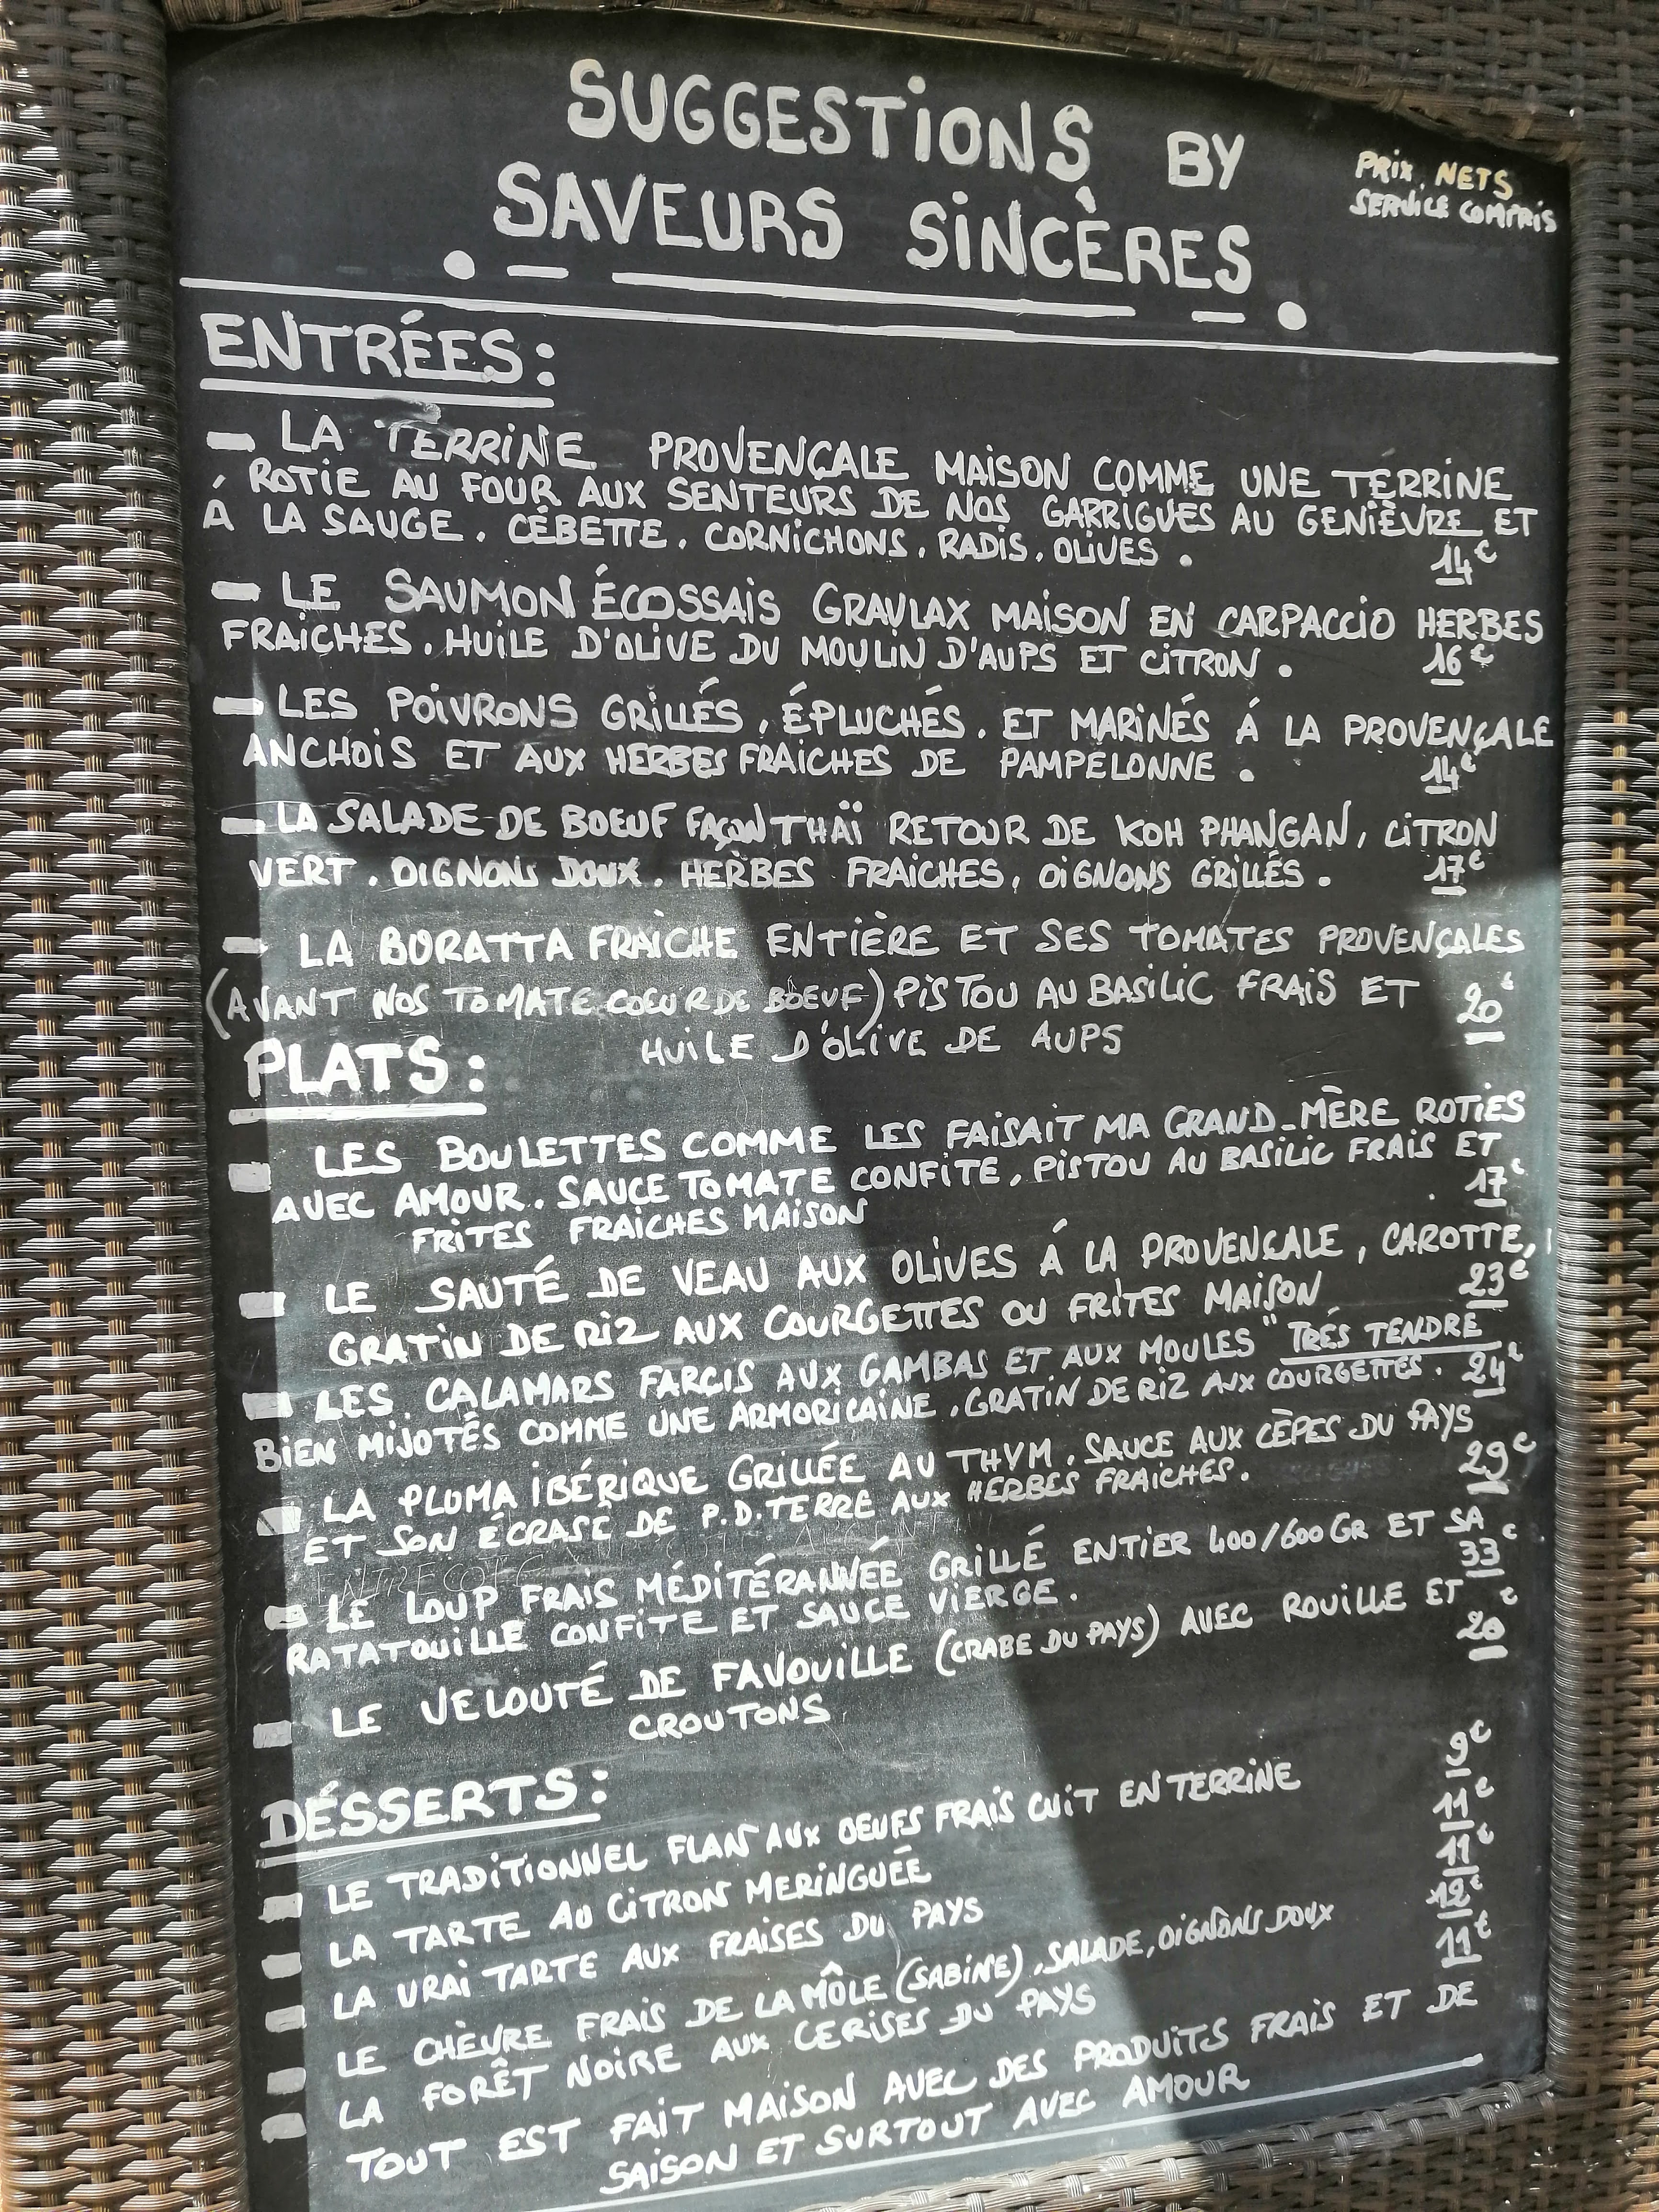 SUGGESTIONS BY
SAVEURS SINCÈRES
PRIX NETS
SERVICE COMPRIS
ENTRÉES:
- LA TERRINE PROVENÇALE MAISON COMME UNE TERRINE
ROTIE AU FOUR AUX SENTEURS DE NOS GARRIGUES AU GENIÈVRE ET
Á LA SAUGE. CÉBETTE. CORNICHONS. RADIS. OLIVES. 14€
- LE SAUMON ÉCOSSAIS GRAVLAX MAISON EN CARPACCIO HERBES
FRAICHES. HUILE D'OLIVE DU MOULIN D'AUPS ET CITRON. 16€
- LES POIVRONS GRILLÉS, ÉPLUCHÉS. ET MARINÉS Á LA PROVENÇALE
ANCHOIS ET AUX HERBES FRAICHES DE PAMPELONNE. 14€
- LA SALADE DE BOEUF FAÇON THAÏ RETOUR DE KOH PHANGAN, CITRON
VERT. OIGNONS DOUX. HERBES FRAICHES, OIGNONS GRILLÉS. 17€
- LA BURATTA FRAÎCHE ENTIÈRE ET SES TOMATES PROVENÇALES
(AVANT NOS TOMATE COEUR DE BOEUF) PISTOU AU BASILIC FRAIS ET 20€
HUILE D'OLIVE DE AUPS
PLATS:
- LES BOULETTES COMME LES FAISAIT MA GRAND-MÈRE ROTIES
AVEC AMOUR. SAUCE TOMATE CONFITE, PISTOU AU BASILIC FRAIS ET
FRITES FRAICHES MAISON 17€
- LE SAUTÉ DE VEAU AUX OLIVES Á LA PROVENÇALE, CAROTTE,
GRATIN DE RIZ AUX COURGETTES OU FRITES MAISON 23€
- LES CALAMARS FARCIS AUX GAMBAS ET AUX MOULES "TRÉS TENDRE"
BIEN MIJOTÉS COMME UNE ARMORICAINE. GRATIN DE RIZ AUX COURGETTES. 24€
- LA PLUMA IBÉRIQUE GRILLÉE AU THYM. SAUCE AUX CÈPES DU PAYS
ET SON ÉCRASÉ DE P.D.TERRE AUX HERBES FRAICHES. 29€
- LE LOUP FRAIS MÉDITÉRANNÉE GRILLÉ ENTIER 400/600GR ET SA
RATATOUILLE CONFITE ET SAUCE VIERGE. 33€
- LE VELOUTÉ DE FAVOUILLE (CRABE DU PAYS) AVEC ROUILLE ET
CROUTONS 20€
DÉSSERTS:
- LE TRADITIONNEL FLAN AUX OEUFS FRAIS CUIT EN TERRINE 9€
- LA TARTE AU CITRON MERINGUÉE 11€
- LA VRAI TARTE AUX FRAISES DU PAYS 11€
- LE CHÈVRE FRAIS DE LA MÔLE (SABINE), SALADE, OIGNONS DOUX 12€
- LA FORÊT NOIRE AUX CERISES DU PAYS 11€
TOUT EST FAIT MAISON AVEC DES PRODUITS FRAIS ET DE
SAISON ET SURTOUT AVEC AMOUR